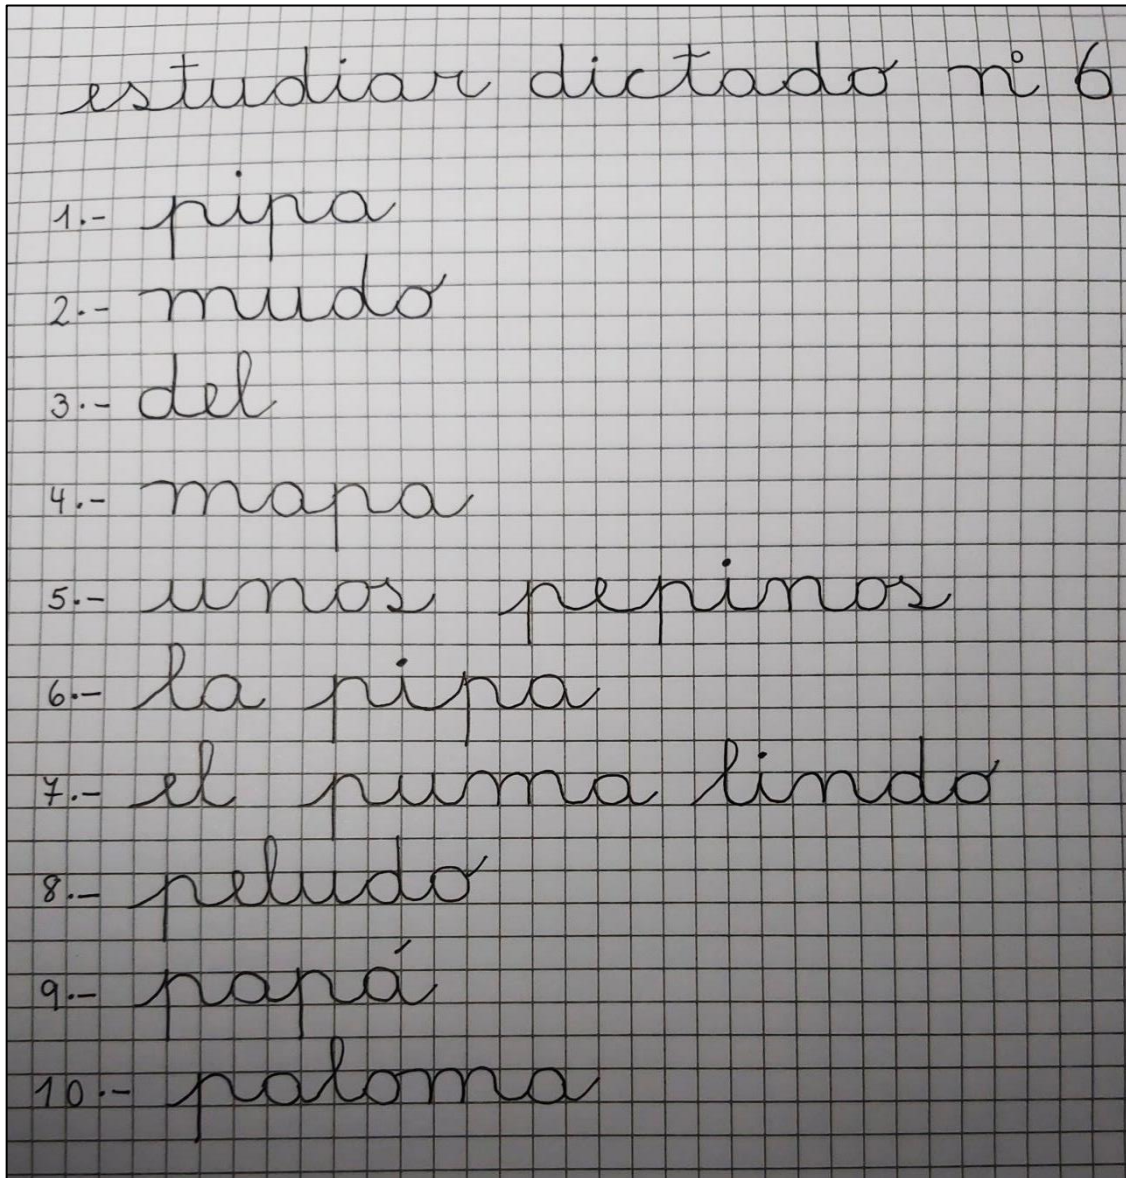 estudiar dictado n° 6
1.- pipa
2.- mudo
3.- del
4.- mapa
5.- unos pepinos
6.- la pipa
7.- el puma lindo
8.- peludo
9.- papá
10.- paloma